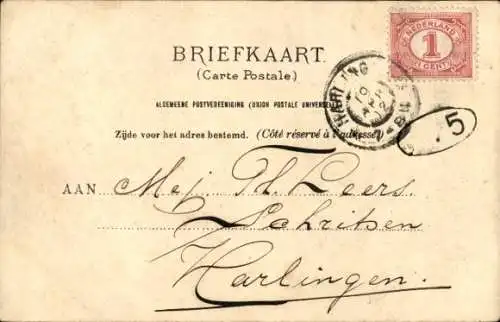 NEDERLAND
1
CENT
BRIEFKAART.
(Carte Postale.)
HARLINGEN
ALGEMEENE POSTVEREENIGING (UNION POSTALE UNIVERSELLE)
5
Zijde voor het adres bestemd. (Côté réservé à l'adresse)
AAN Mej. Th. Leers.
Schritsen
Harlingen.